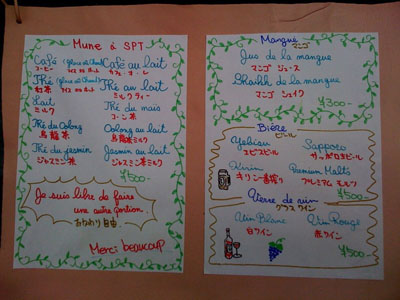 Mune à SPT
Café (glacé et Chaud) Café au lait
コーヒー アイス or ホット カフェ・オ・レ
Thé (glacé et Chaud) Thé au lait
紅茶 アイス or ホット ミルクティー
Lait Thé du maïs
ミルク コーン茶
Thé du Oolong Oolong au lait
烏龍茶 烏龍茶ミルク
Thé du jasmin Jasmin au lait
ジャスミン茶 ジャスミン茶ミルク
¥500-
Je suis libre de faire
une autre portion.
おかわり自由.
Merci beaucoup
Mangue マンゴ
Jus de la mangue
マンゴ ジュース
Shaihk de la mangue
マンゴ シェイク
¥300-
Bière ビール
Yebisu Sapporo
エビスビール サッポロ生ビール
Kirin Premium Malts
キリン一番搾り プレミアム モルツ
¥500-
Verre de vin
グラスワイン
Vin Blanc Vin Rouge
白ワイン 赤ワイン
¥500-